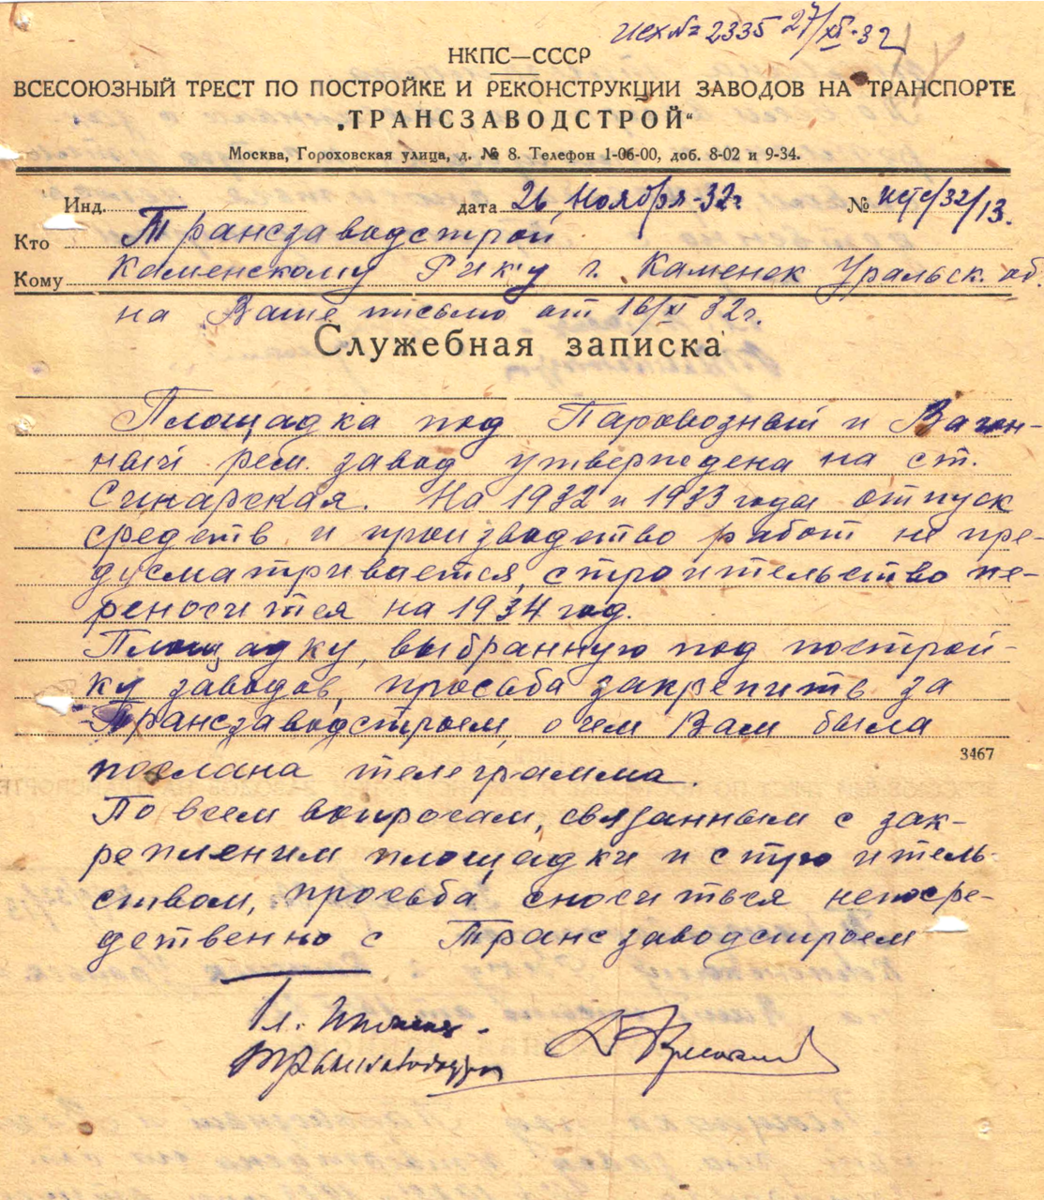 Исх № 2335 27/XI-32
НКПС—СССР
ВСЕСОЮЗНЫЙ ТРЕСТ ПО ПОСТРОЙКЕ И РЕКОНСТРУКЦИИ ЗАВОДОВ НА ТРАНСПОРТЕ
„ТРАНСЗАВОДСТРОЙ“
Москва, Гороховская улица, д. № 8. Телефон 1-06-00, доб. 8-02 и 9-34.
Инд. дата 26 Ноября-32г №
Кто Трансзаводстрой
Кому Каменскому Рику г. Каменск Уральск. об.
на Ваше письмо от 16/XI 32г.
Служебная записка
Площадка под Паровозный и Вагон-
ный рем. завод утверждена на ст.
Синарская. На 1932 и 1933 года отпуск
средств и производство работ не пре-
дусматривается, строительство пе-
реносится на 1934 год.
Площадку, выбранную под построй-
ку заводов, просьба закрепить за
Трансзаводстроем, о чем Вам была
3467
послана телеграмма.
По всем вопросам, связанным с зак-
реплением площадки и строитель-
ством, просьба сноситься непосре-
дственно с Трансзаводстроем